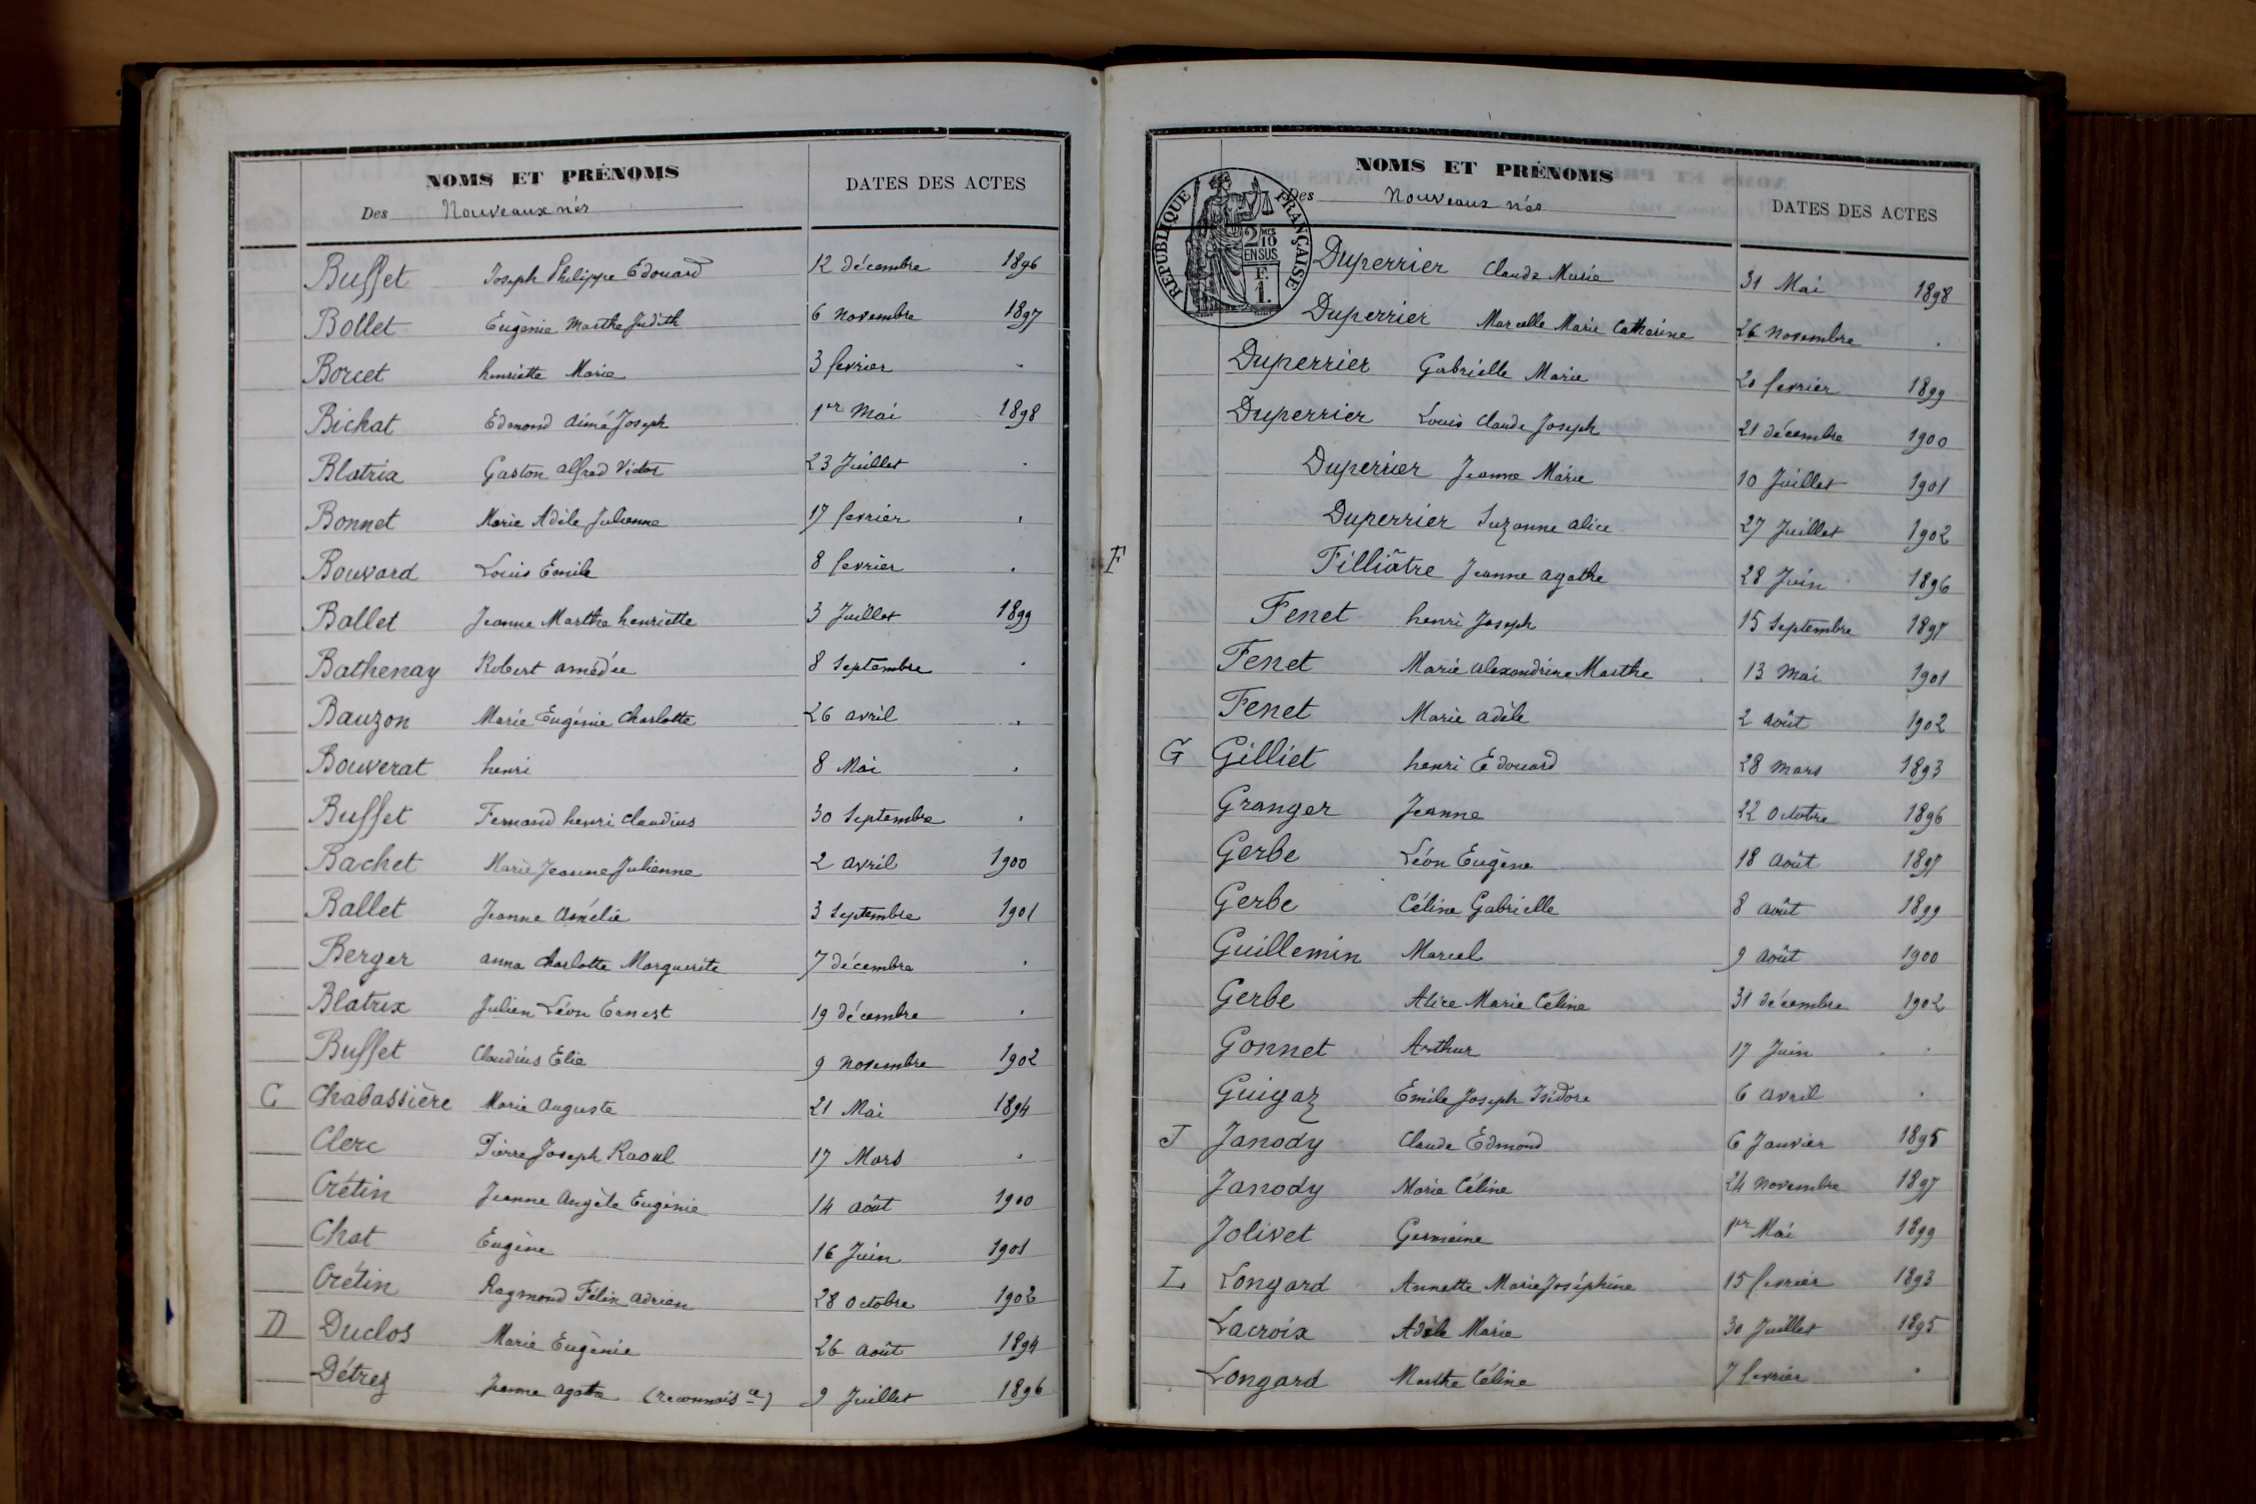 NOMS ET PRÉNOMS
DATES DES ACTES
Des Nouveaux nés
Buffet Joseph Philippe Edouard 12 décembre 1896
Bollet Eugénie Marthe Judith 6 novembre 1897
Borcet henriette Marie 3 fevrier "
Bichat Edmond Aimé Joseph 1er Mai 1898
Blatrix Gaston Alfred Victor 23 Juillet "
Bonnet Marie Adèle Julienne 17 fevrier "
Bouvard Louis Emile 8 fevrier "
Ballet Jeanne Marthe henriette 3 Juillet 1899
Bathenay Robert amédée 8 Septembre "
Bauzon Marie Eugénie Charlotte 26 avril "
Bouverat henri 8 Mai "
Buffet Fernand henri Claudius 30 Septembre "
Bachet Marie Jeanne Julienne 2 avril 1900
Ballet Jeanne Amélie 3 Septembre 1901
Berger anna Charlotte Marguerite 7 décembre "
Blatrix Julien Léon Ernest 19 décembre "
Buffet Claudius Elie 9 novembre 1902
C Chabassière Marie Auguste 21 Mai 1894
Clerc Pierre Joseph Raoul 17 Mars "
Crétin Jeanne Angèle Eugénie 14 août 1900
Chat Eugène 16 Juin 1901
Crétin Raymond Félix Adrien 28 Octobre 1902
D Duclos Marie Eugénie 26 août 1894
Détrez Jeanne Agathe (reconnaisce) 9 Juillet 1896
NOMS ET PRÉNOMS
DATES DES ACTES
Des Nouveaux nés
RÉPUBLIQUE FRANÇAISE
2 MES
10
EN SUS
F.
1.
Duperrier Claude Marie 31 Mai 1898
Duperrier Marcelle Marie Catherine 26 novembre "
Duperrier Gabrielle Marie 20 fevrier 1899
Duperrier Louis Claude Joseph 21 décembre 1900
Duperrier Jeanne Marie 10 Juillet 1901
Duperrier Suzanne alice 27 Juillet 1902
F Filliâtre Jeanne agathe 28 Juin 1896
Fenet henri Joseph 15 Septembre 1897
Fenet Marie Alexandrine Marthe 13 Mai 1901
Fenet Marie adèle 2 août 1902
G Gilliet henri Edouard 28 mars 1893
Granger Jeanne 22 Octobre 1896
Gerbe Léon Eugène 18 août 1897
Gerbe Céline Gabrielle 8 août 1899
Guillemin Marcel 9 août 1900
Gerbe Alice Marie Céline 31 décembre 1902
Gonnet Arthur 17 Juin "
Guigaz Emile Joseph Isidore 6 avril "
J Janody Claude Edmond 6 Janvier 1895
Janody Marie Céline 24 novembre 1897
Jolivet Germaine 1er Mai 1899
L Longard Annette Marie Joséphine 15 fevrier 1893
Lacroix Adèle Marie 30 Juillet 1895
Longard Marthe Céline 7 fevrier "